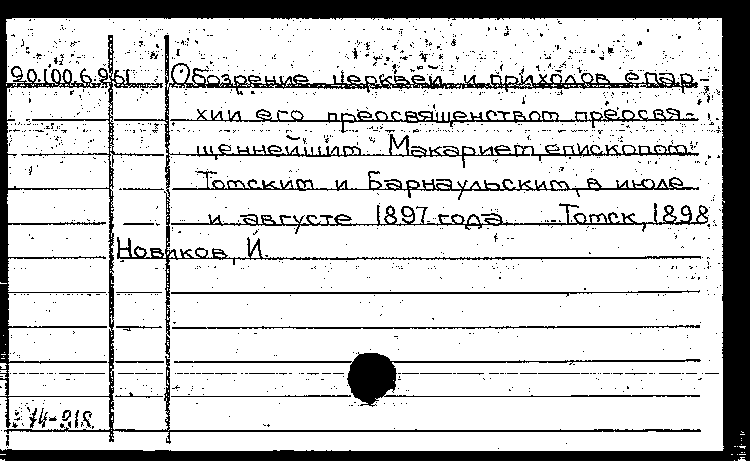 90.100.6.961 Обозрение церквей и приходов епар-
хии его преосвященством преосвя-
щеннейшим Макарием, епископом
Томским и Барнаульским, в июле
и августе 1897 года Томск, 1898
Новиков, И.
74-918